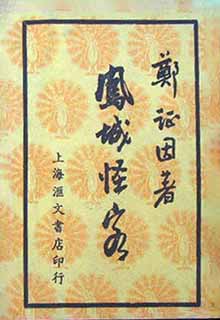 鄭証因著
鳳城怪客
上海滙文書店印行